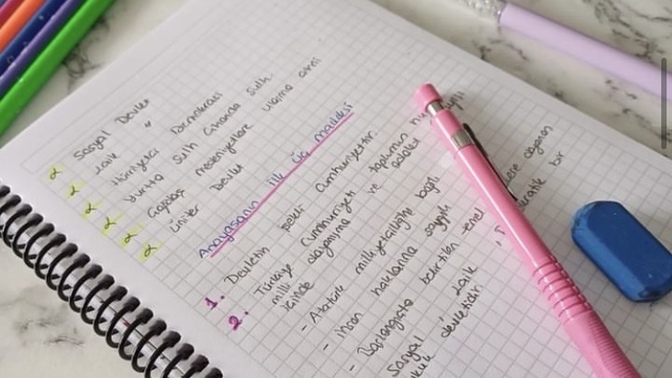 Sosyal Devlet
Laik "
Hürriyetçi Demokrasi
Yurtta Sulh Cihanda Sulh
Çağdaş medeniyetlere ulaşma azmi
Üniter Devlet
Anayasanın ilk üç maddesi
1. Devletin şekli Cumhuriyettir.
2. Türkiye Cumhuriyeti toplumun
milli dayanışma ve adalet
içinde
- Atatürk milliyetçiliğine bağlı
- insan haklarına saygılı
- Başlangıçta belirtilen temel dayanan
Sosyal, laik
devletidir